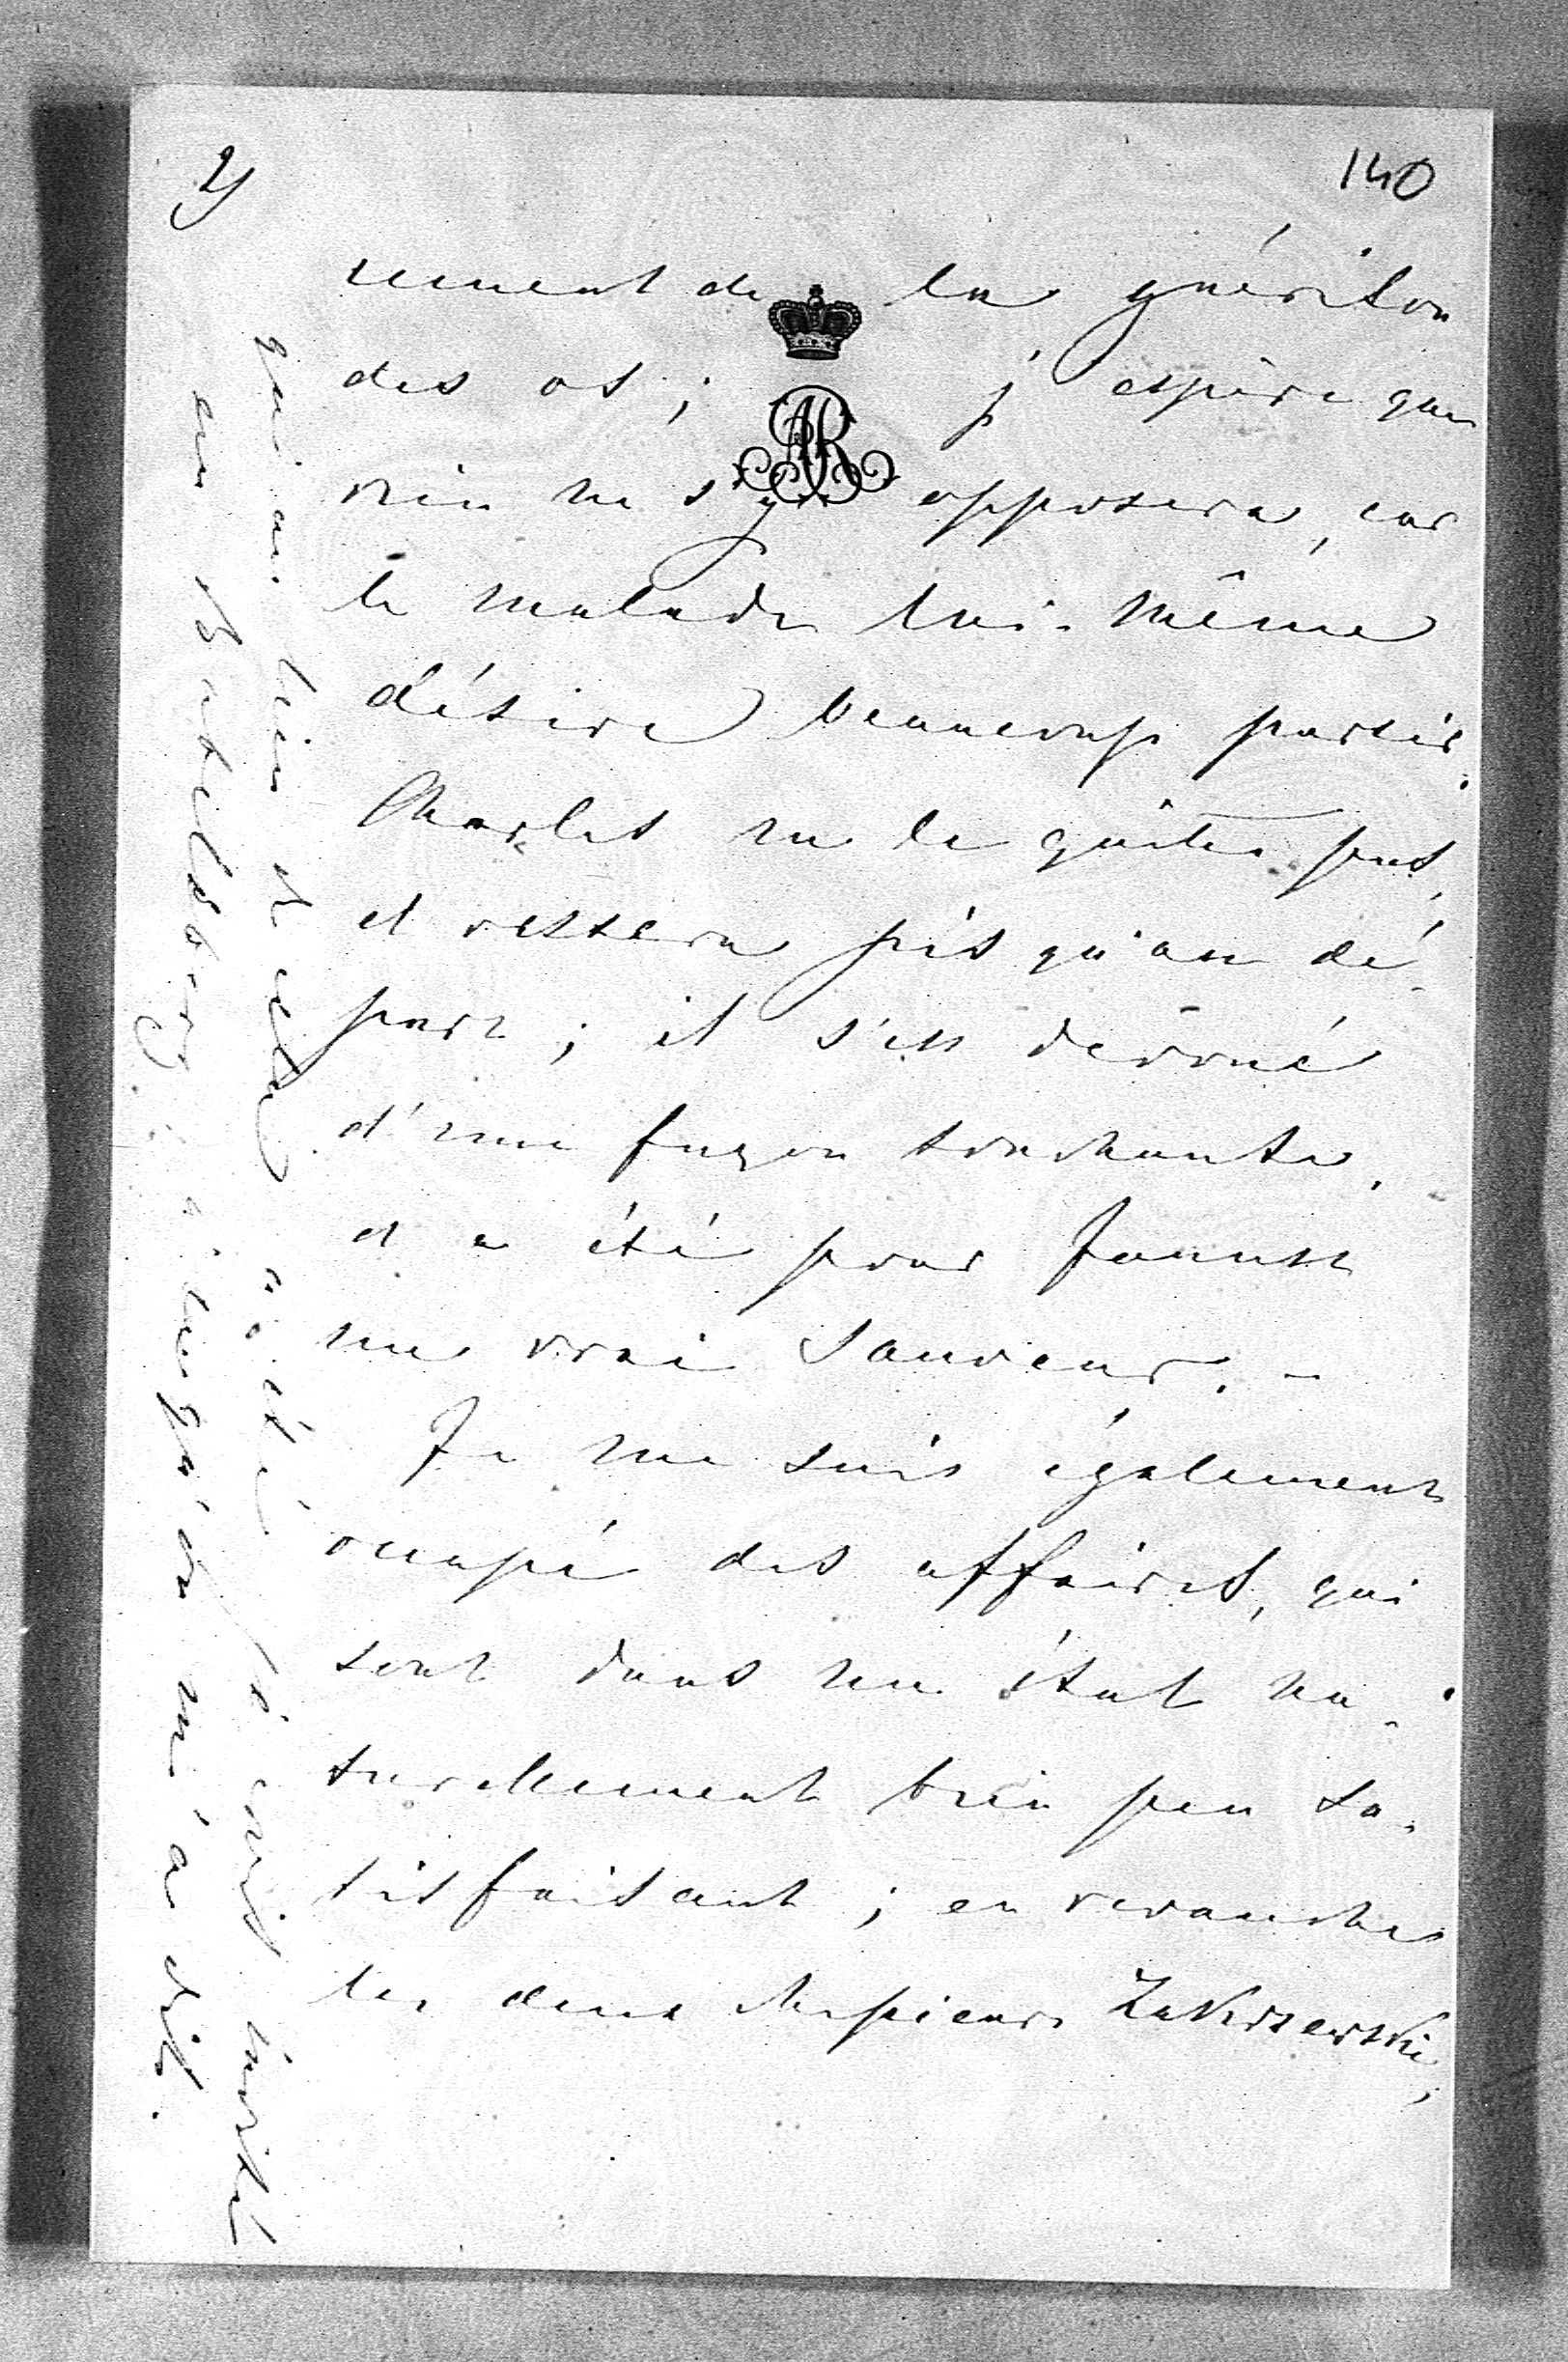 2/
140
rement de la guérison
des os ; j'espère que
rien ne s'y opposera, car
le malade lui-même
désire beaucoup partir.
Charles ne le quitte pas,
et restera jusqu'au dé-
part ; il s'est dévoué
d'une façon touchante,
et a été pour Janusz
un vrai Sauveur. –
Je me suis également
occupé des affaires, qui
sont dans un état na-
turellement bien peu sa-
tisfaisant ; en revanche
les deux Messieurs Zakrzewski,
qui au lieu de cela a été
en Babelsberg, à ce qu'on m'a dit.